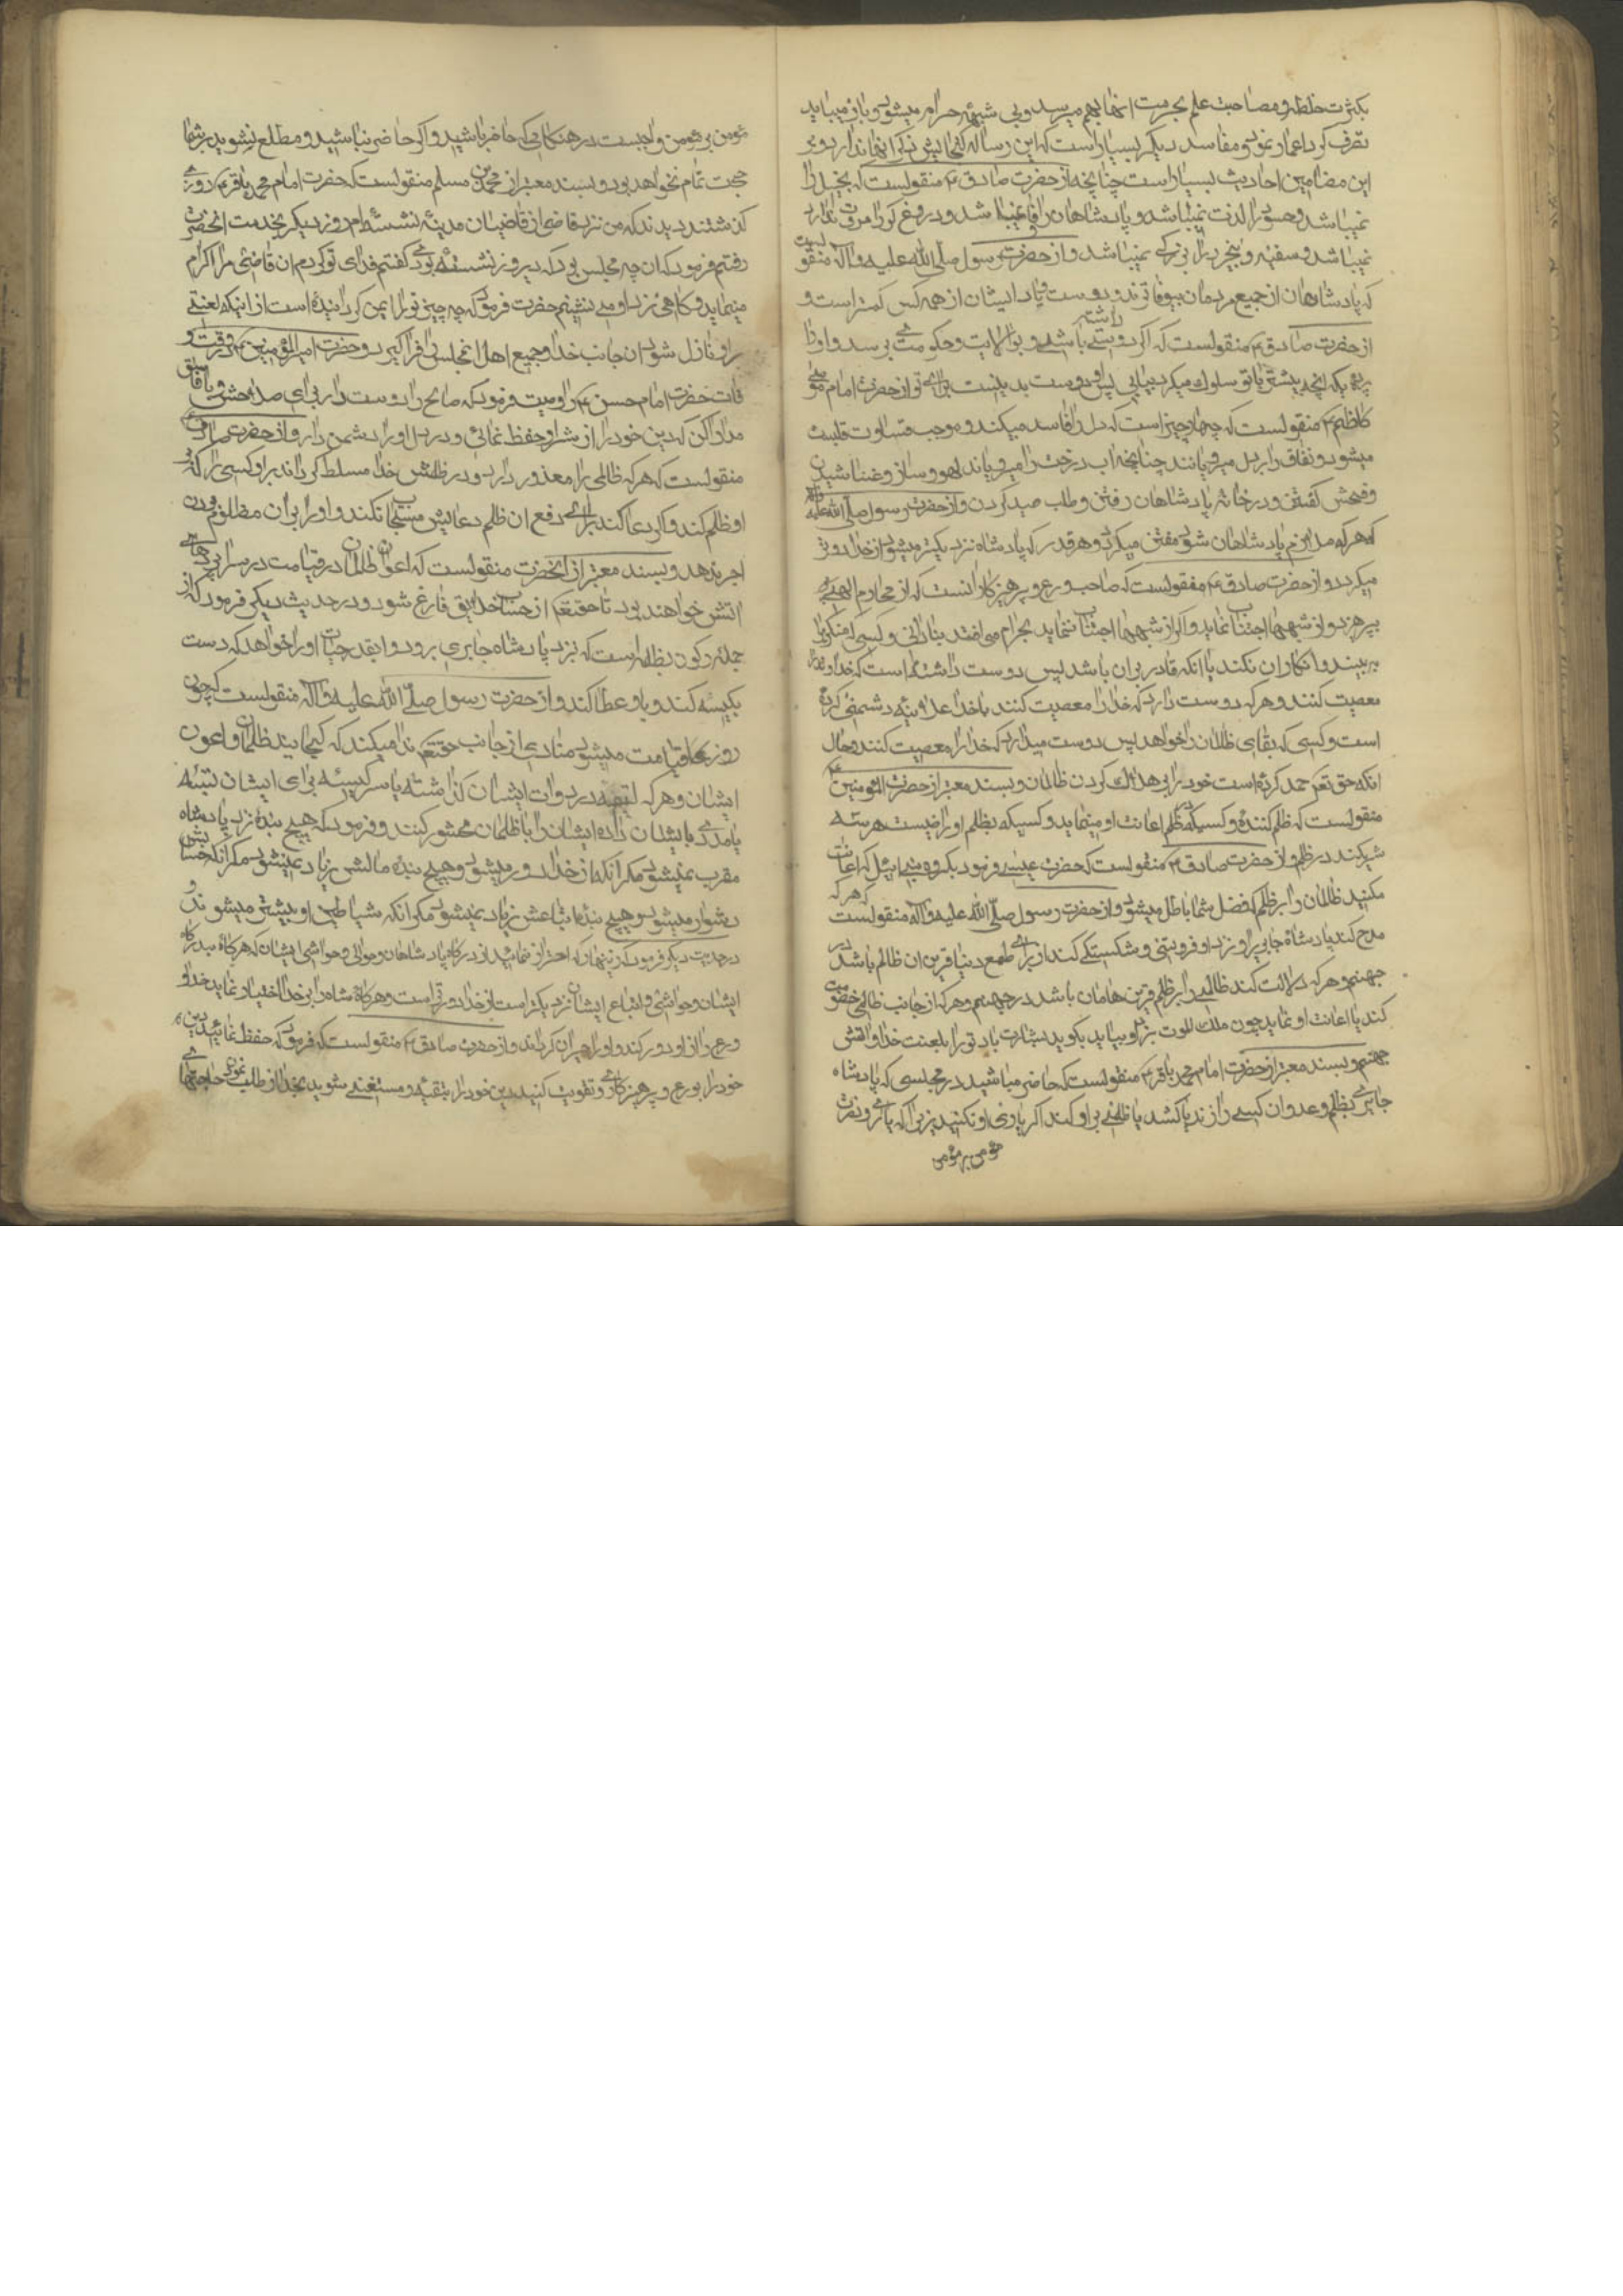 بکثرت خلطه و مصاحبت علم بحرمت انها بهم میرسد و بی شبهه حرام میشود و باز میباید
تصرف کرد و اغماز نمود و مفاسد دیگر بسیار است که این رساله کنجایش ذکر انها ندارد و بر
این مضامین احادیث بسیار است چنانچه از حضرت صادق ع منقولست که بخیل را
نمیباشد و حسود را لذت نمیباشد و پادشاهان را وفا نمیباشد و دروغ کو را مروت
نمیباشد و سفیه و بیخرد را بزرکی نمیباشد و از حضرت رسول صلی الله علیه و اله منقولست
که پادشاهان از جمیع مردمان بیوفاترند و دوست و یاد ایشان از همه کس کمتر است و
از حضرت صادق ع منقولست که اکر دوستی داشته باشی و بولایت و حکومتی برسد و او را
ده یک انچه بیشتر با تو سلوک میکرد بیابی پس او دوست بد نیست برای تو از حضرت امام موسی
کاظم ع منقولست که چهار چیز است که دل را فاسد میکند و موجب قساوت قلب
میشود و نفاق را در دل میرویانند چنانچه اب درخت را میرویاند لهو و ساز و غنا شنیدن
و فحش کفتن و در خانه پادشاهان رفتن و طلب صید کردن و از حضرت رسول صلی الله علیه واله
که هر که ملازم پادشاهان شود مفتن میکردد و هر قدر که پادشاه نزدیکتر میشود از خدا دورتر
میکردد و از حضرت صادق ع منقولست که صاحب ورع و پرهیزکار انست که از محارم الهی
بپرهیزد و از شبهها اجتناب نماید و اکر از شبهها اجتناب ننماید بحرام می افتد بنادانی و کسی که منکری را
به بیند و انکار ان نکند با انکه قادر بر ان باشد پس دوست داشته است که خدا را
معصیت کنند و هر که دوست دارد که خدا را معصیت کنند با خدا علانیه دشمنی کرده
است و کسی که بقای ظالمان را خواهد پس دوست میدارد که خدا را معصیت کنند و حال
انکه حق تعم حمد کرده است خود را بر هلاک کردن ظالمان و بسند معتبر از حضرت امیر المؤمنین ع
منقولست که ظلم کننده و کسیکه بر ظلم اعانت او مینماید و کسیکه بظلم او راضیست هر سه
شریکند در ظلم و از حضرت صادق ع منقولست که حضرت عیسی فرمود بکروه بنی اسرائیل که اعانت
مکنید ظالمان را بر ظلم که فضل شما باطل میشود و از حضرت رسول صلی الله علیه و اله منقولست که هر که
مدح کند پادشاه جابر را و نزد او فروتنی و شکستکی کند از برای طمع دنیا قرین ان ظالم باشد در
جهنم و هر که دلالت کند ظالمی را بر ظلم قرین هامان باشد در جهنم و هر که از جانب ظالمی خصومت
کند یا اعانت او نماید چون ملک الموت بنزد او بیاید بکوید بشارت باد تو را بلعنت خدا و اتش
جهنم و بسند معتبر از حضرت امام محمد باقر ع منقولست که حاضر مباشید در مجلسی که پادشاه
جابری بظلم و عدوان کسی را زند یا کشد یا ظلمی بر او کند اکر یاری او نکنید زیرا که یاری و نصرت
مؤمن بر مؤمن
مؤمن بر مؤمن واجبست در هنکامی که حاضر باشید و اکر حاضر نباشید و مطلع نشوید بر شما
حجت تمام نخواهد بود و بسند معتبر از محمد بن مسلم منقولست که حضرت امام محمد باقر ع روزی
کذشتند دیدند که من نزد قاضی از قاضیان مدینه نشسته ام روز دیکر بخدمت انحضرت
رفتم فرمود که ان چه مجلس بود که دیروز نشسته بودی کفتم فدای تو کردم ان قاضی مرا اکرام
مینماید و کاهی نزد او می نشینم حضرت فرمود که چه چیز تو را ایمن کردانیده است از اینکه لعنتی
بر او نازل شود از جانب خدا و جمیع اهل انمجلس را فراکیرد و حضرت امیر المؤمنین ع در وقت و
فات حضرت امام حسن ع را وصیت فرمود که صالح را دوست دار برای صلاحش و با فاسق
مدارا کن که دین خود را از شر او حفظ نمائی و در دل او را دشمن دار و از حضرت صادق ع
منقولست که هر که ظالمی را معذور دارد و در ظلمش خدا مسلط کرداند بر او کسی را که بر
او ظلم کند و اکر دعا کند برای دفع ان ظلم دعایش مستجاب نکند و او را بر ان مظلوم بودن
اجر ندهد و بسند معتبر از انحضرت منقولست که اعوان ظالمان در قیامت در سراپردهای از
اتش خواهند بود تا حقتعم از حساب خلایق فارغ شود و در حدیث دیکر فرمود که از
جمله رکون بظالم است که نزد پادشاه جابری برود و بقدر حیات او را خواهد که دست
بکیسه کند و باو عطا کند و از حضرت رسول صلی الله علیه واله منقولست که چون
روز قیامت میشود منادی از جانب حقتعم ندا میکند که کجایند ظالمان و اعوان
ایشان و هر که لیقه در دوات ایشان کذاشته یا سر کیسه برای ایشان بسته
یا مدی بایشان داده ایشان را با ظالمان محشور کنند و فرمود که هیچ بنده نزد پادشاه
مقرب نمیشود مکر انکه از خدا دور میشود و هیچ بنده مالش زیاد نمیشود مکر انکه حسابش
دشوار میشود و هیچ بنده اتباعش زیاد نمیشود مکر انکه شیاطین او بیشتر میشوند و
در حدیث دیکر فرمود که زینهار که احتراز نمائید از درکاه پادشاهان و حوالی و حواشی ایشان که هر که بدرکاه
ایشان و حواشی و اتباع ایشان نزدیکتر است از خدا دورتر است و هر که پادشاه را بر خدا اختیار نماید خدا
ورع را از او دور کند و او را حیران کرداند و از حضرت صادق ع منقولست که فرمود که حفظ نمائید دین
خود را بورع و پرهیزکاری و تقویت کنید دین خود را بتقیه و مستغنی شوید بخدا از طلب نمودن حاجتها